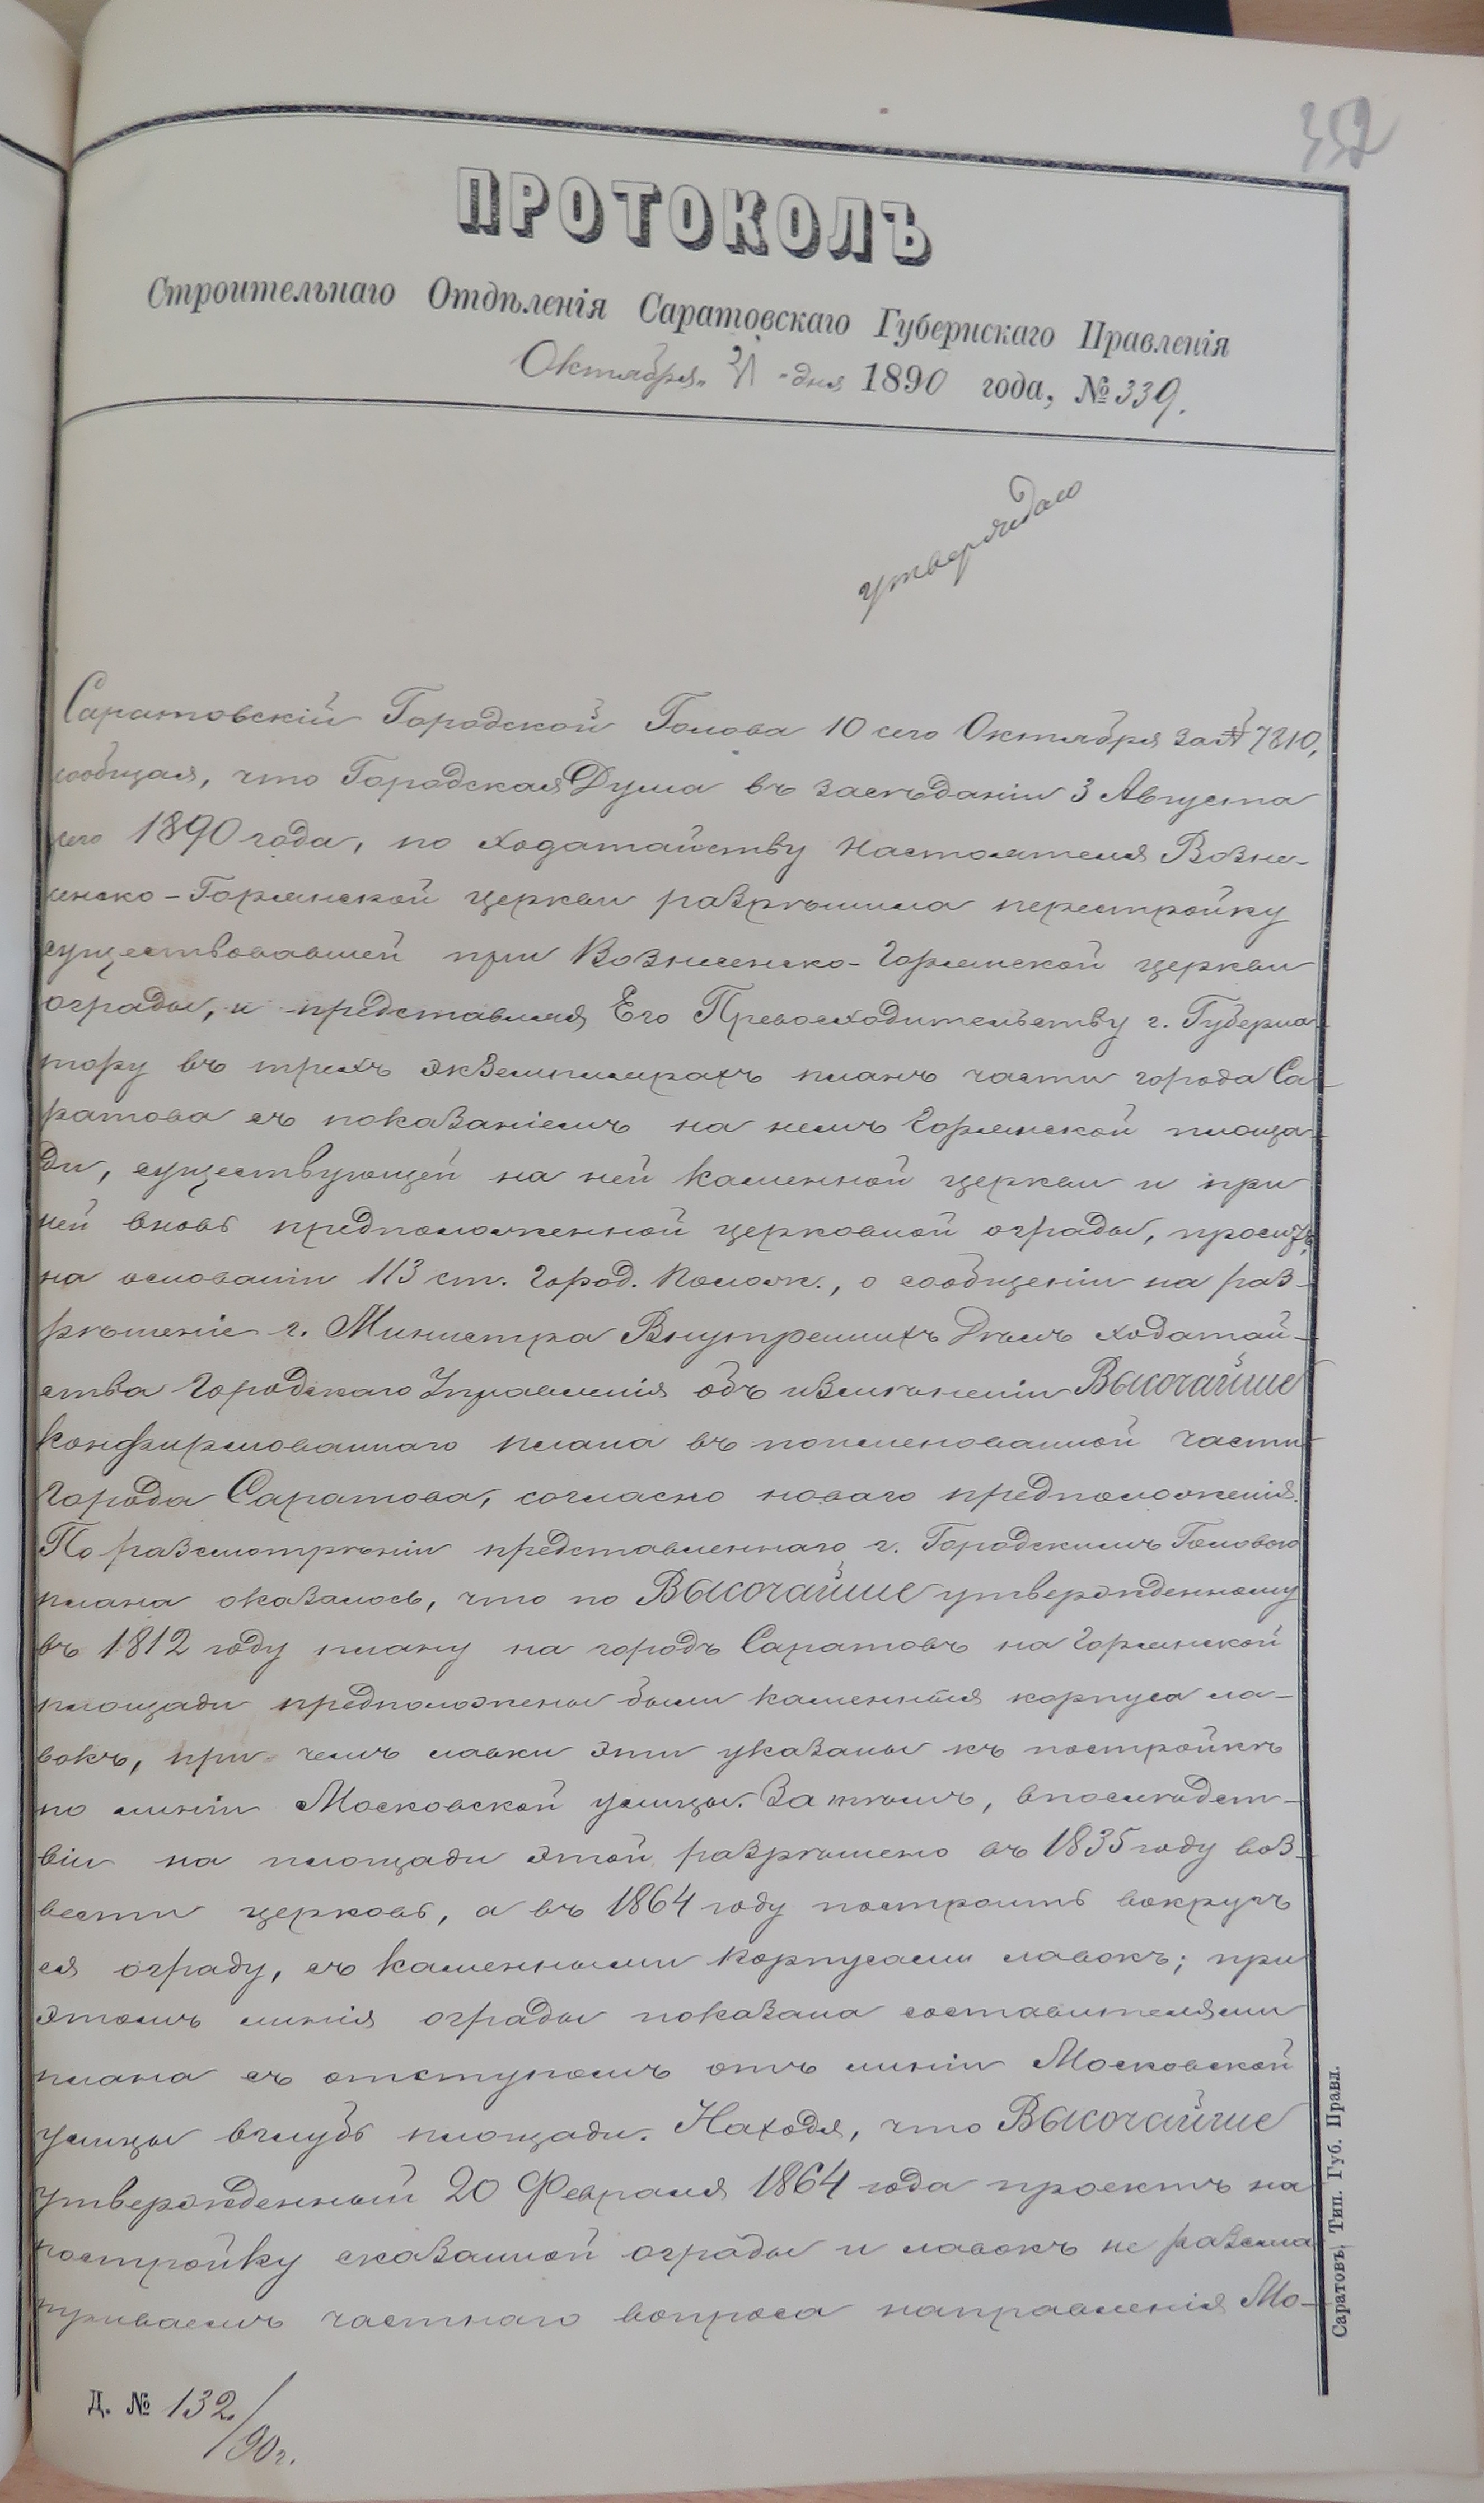 352
ПРОТОКОЛЪ
Строительнаго Отдѣленія Саратовскаго Губернскаго Правленія
Октября „ 31 -дня 1890 года, № 339.
утверждаю
Саратовскій Городской Голова 10 сего Октября за № 7810,
сообщая, что Городская Дума въ засѣданіи 3 Августа
сего 1890 года, по ходатайству настоятеля Возне-
сенско-Горянской церкви разрѣшила перестройку
существовавшей при Вознесенско-Горянской церкви
ограды, и представляя Его Превосходительству г. Губерна-
тору въ трехъ экземплярахъ планъ части города Са-
ратова съ показаніемъ на немъ Горянской площа-
ди, существующей на ней каменной церкви и при
ней вновь предположенной церковной ограды, проситъ,
на основаніи 113 ст. Город. Полож., о сообщеніи на раз-
рѣшеніе г. Министра Внутреннихъ Дѣлъ ходатай-
ства Городскаго Управленія объ измѣненіи Высочайше
конфирмованнаго плана въ поименованной части
города Саратова, согласно новаго предположенія.
По разсмотрѣніи представленнаго г. Городскимъ Головою
плана оказалось, что по Высочайше утвержденному
въ 1812 году плану на городъ Саратовъ на Горянской
площади предположены были каменныя корпуса ла-
вокъ, при чемъ лавки эти указаны къ постройкѣ
по линіи Московской улицы. Затѣмъ, впослѣдст-
віи на площади этой разрѣшено въ 1835 году воз-
вести церковь, а въ 1864 году построить вокругъ
ея ограду, съ каменными корпусами лавокъ; при
этомъ линія ограды показана составителями
плана съ отступомъ отъ линіи Московской
улицы вглубь площади. Находя, что Высочайше
утвержденный 20 Февраля 1864 года проектъ на
постройку сказанной ограды и лавокъ не разсма
триваетъ частнаго вопроса направленія Мо-
Д. № 132/90 г.
Саратовъ, Тип. Губ. Правл.